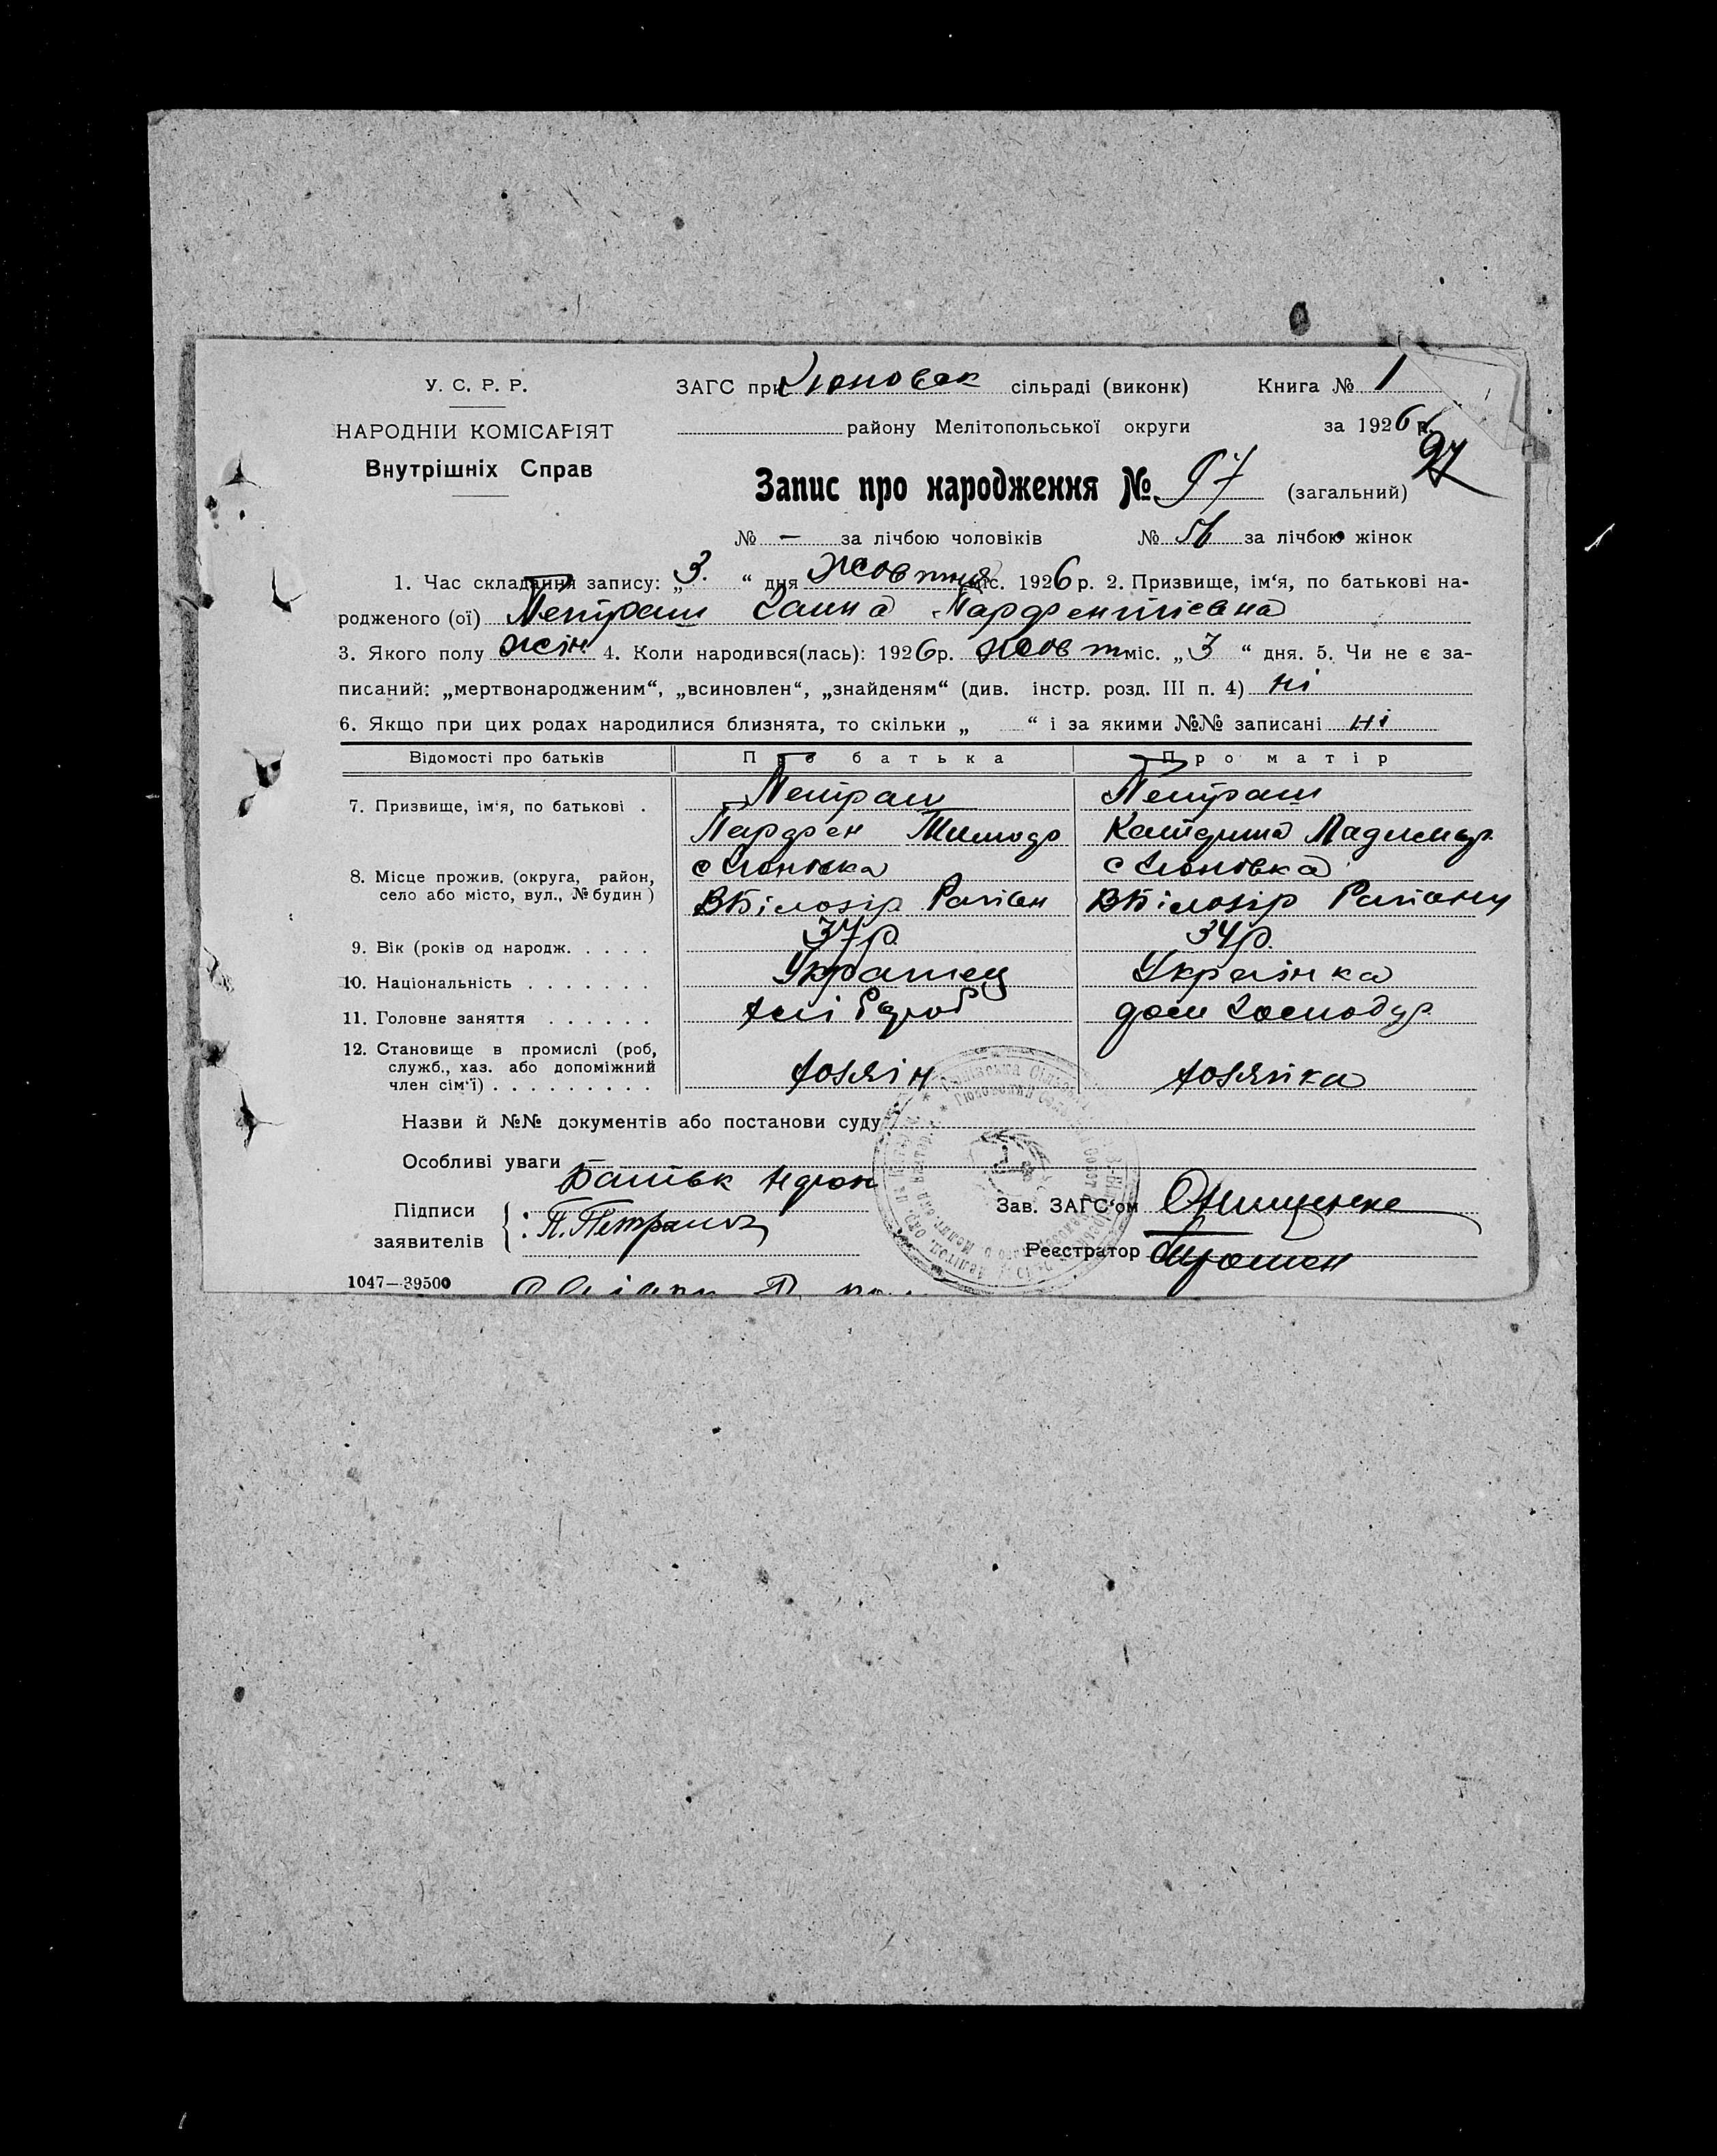 У. С. Р. Р.
ЗАГС при сільраді (виконк) Книга № 1
НАРОДНІЙ КОМІСАРІЯТ
району Мелітопольської округи за 1926 р.
Внутрішніх Справ
97
Запис про народження № 97 (загальний)
№ — за лічбою чоловіків № за лічбою жінок
1. Час складання запису: „3." дня Жовтня міс. 1926 р. 2. Призвище, ім'я, по батькові на-
родженого (ої) Петраш Ганна
3. Якого полу жін 4. Коли народився(лась): 1926 р. Жовт міс. „3" дня. 5. Чи не є за-
писаний: „мертвонародженим", „всиновлен", „знайденям" (див. інстр. розд. III п. 4) ні
6. Якщо при цих родах народилися близнята, то скільки „ " і за якими №№ записані ні
Відомості про батьків Про батька Про матір
7. Призвище, ім'я, по батькові . Петраш Петраш
Парфен Тимофо
8. Місце прожив. (округа, район, с с
село або місто, вул., № будин) ВБілозір ВБілозір
9. Вік (років од народж. . . . . 37 р. 34 р.
10. Національність . . . . . . . Украінец Украінка
11. Головне заняття . . . . . . дом Господар
12. Становище в промислі (роб,
служб., хаз. або допоміжний хозяін хозяйка
член сім'ї) . . . . . . . . .
Назви й №№ документів або постанови суду
Особливі уваги
Батьк
Підписи Зав. ЗАГС'ом Онищенко
заявителів П. Петраш
Реєстратор
1047—39500